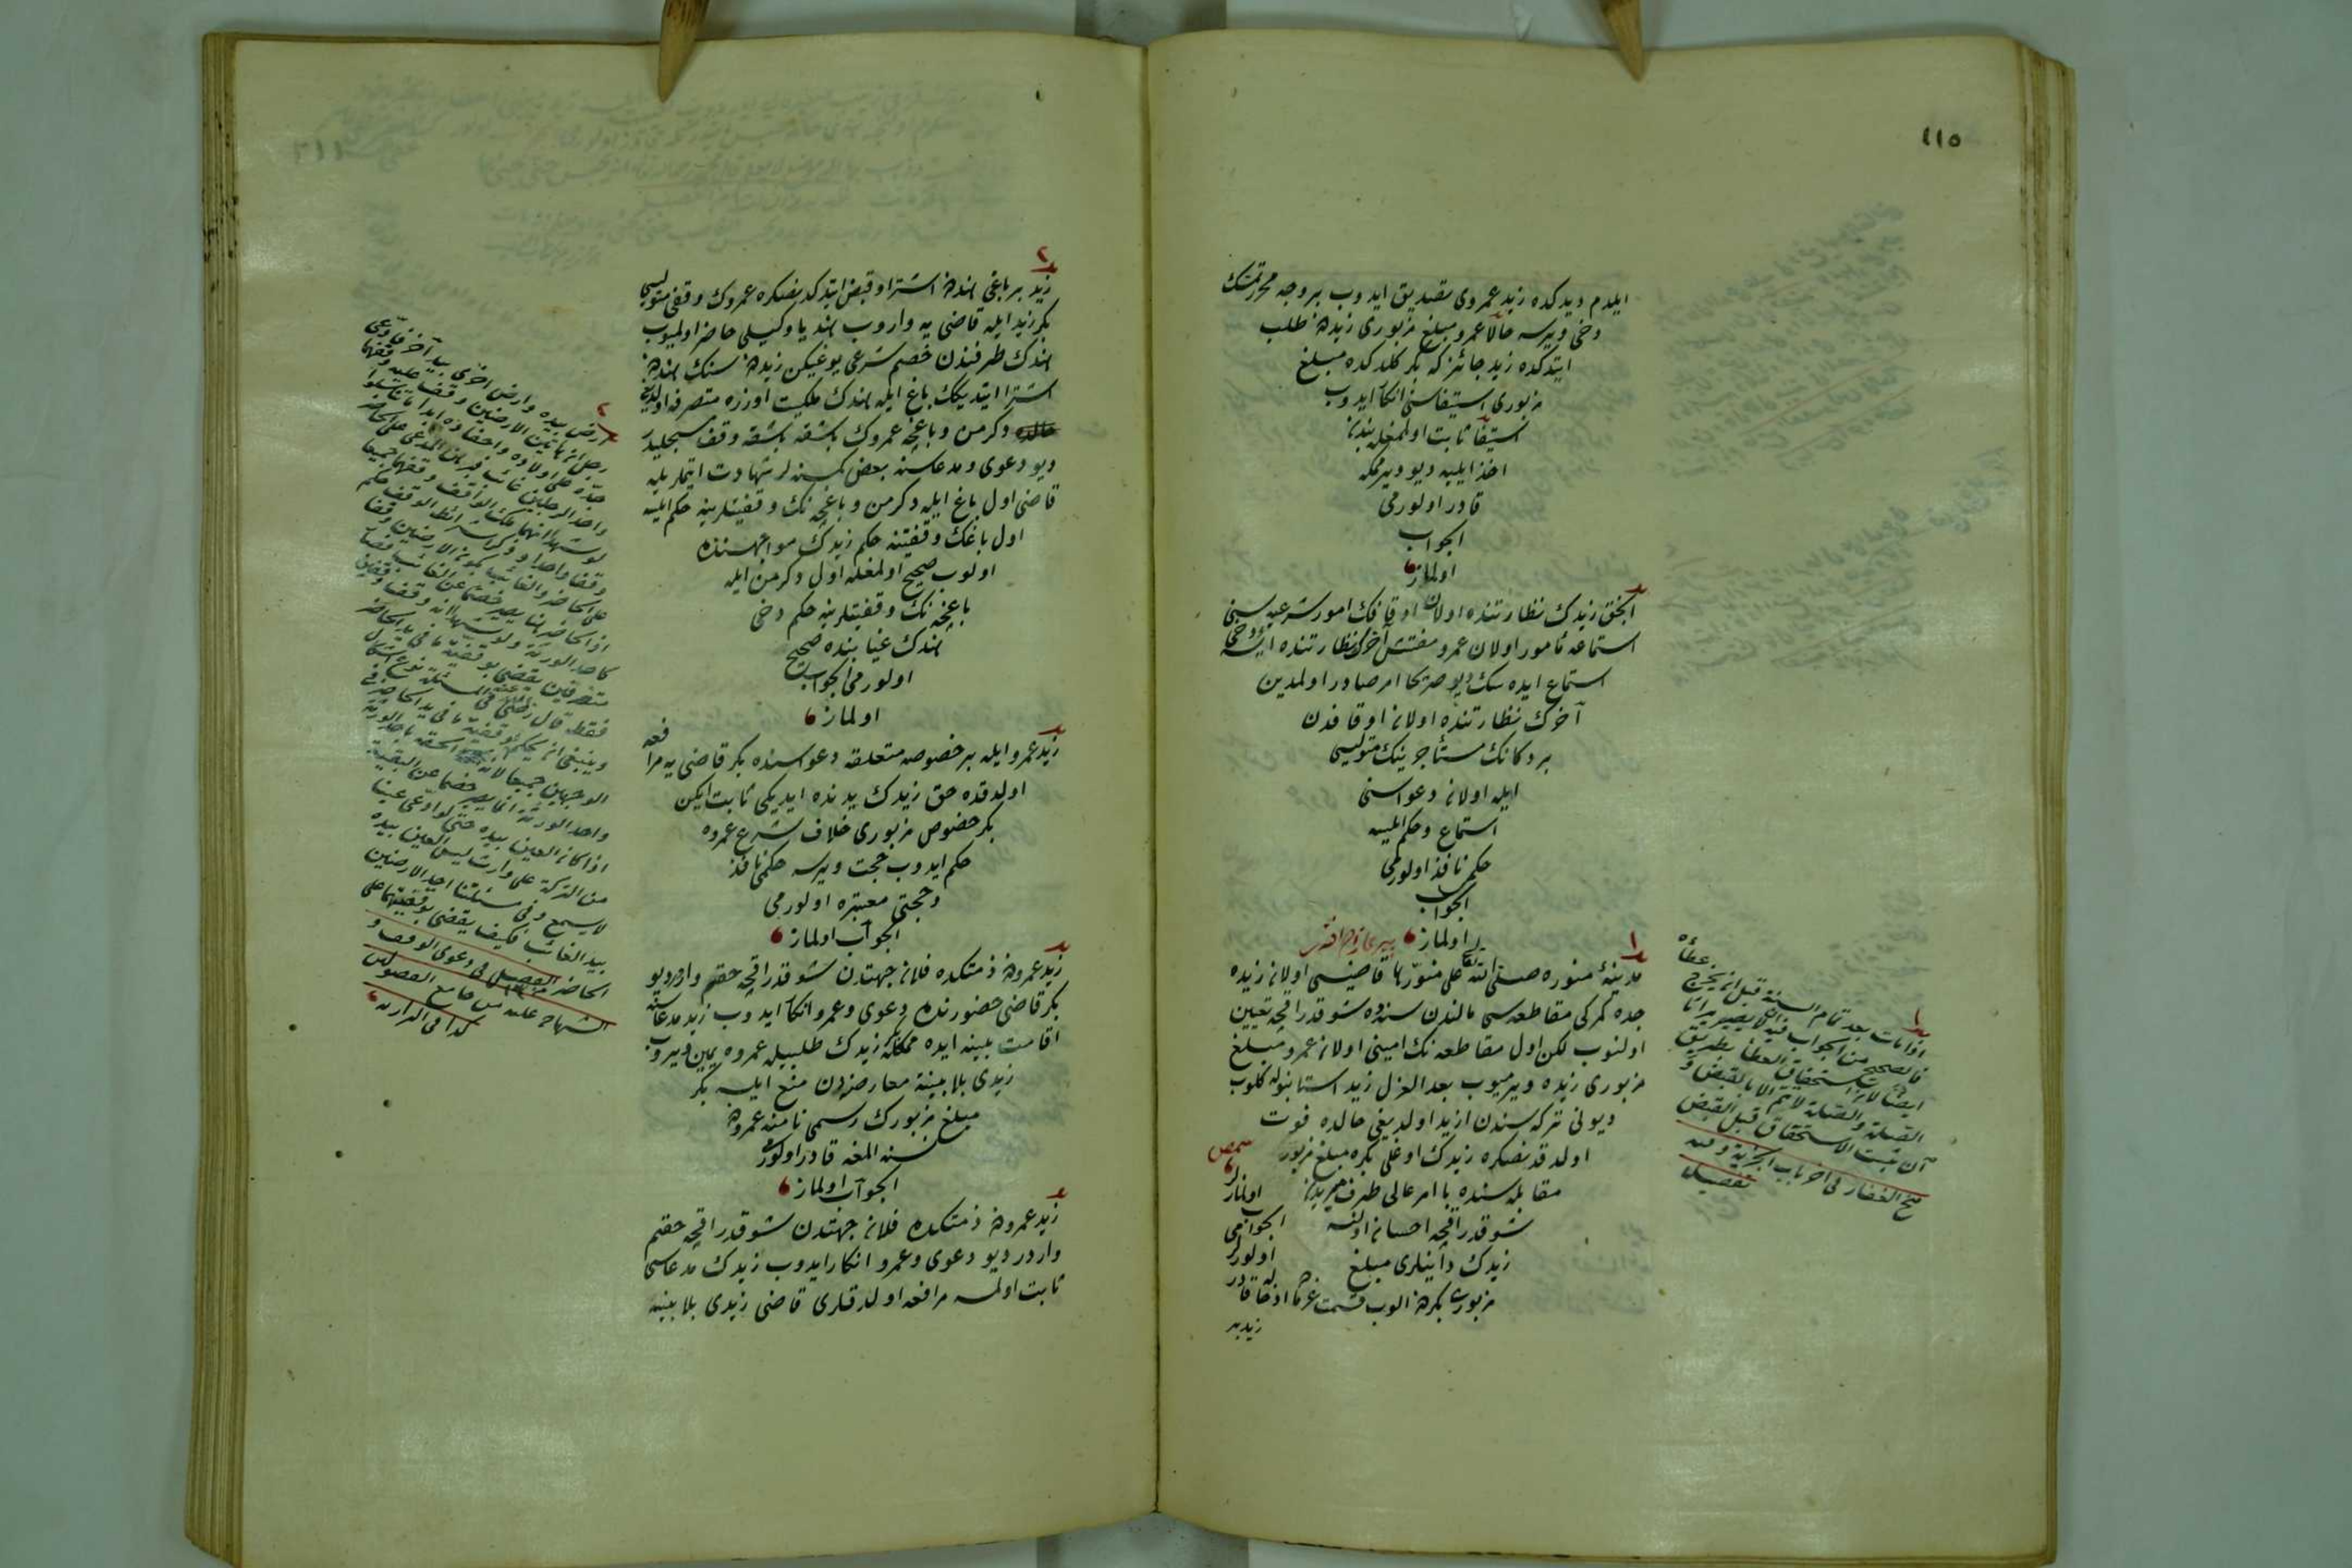 ٤١٥
ایلدم دیدکده زید عمروی تصدیق ایدوب بر وجه محرر تمسك
دخی ویرسه حالا عمرو مبلغ مزبوری زیددن طلب
ایتدکده زید جائزکه بکر کلدکده مبلغ
مزبوری استیفاسنی انکار ایدوب
استیفا ثابت اولمغله بندن
اخذ ایلیه دیو ویرمکه
قادر اولورمی
الجواب
اولماز
الحق زیدك نظارتنده اولان اوقافك امور شرعیه سنی
استماعه مأمور اولان عمرو مفتش آخرك نظارتنده
استماع ایده سك دیو صریحا امر صادر اولمدین
آخرك نظارتنده اولان اوقافدن
بر دکانك مستأجرینك متولیسی
ایله اولان دعواسنی
استماع وحکم ایلسه
حکمی نافذ اولورمی
الجواب
اولماز
مدینهٔ منوره صلی الله تعالی علی منورها قاضیسی اولان زیده
جده کمرکی مقاطعه سی مالندن سنده شو قدر اقچه تعیین
اولنوب لکن اول مقاطعه نك امینی اولان عمرو مبلغ
مزبوری زیده ویرمیوب بعد العزل زید استانبوله کلوب
دیونی ترکه سندن ازید اولدیغی حالده فوت
اولدقدنصکره زیدك اوغلی بکره مبلغ مزبور
مقابله سنده با امر عالی طرف میریدن
شو قدر اقچه احسان اولنسه
زیدك داینلری مبلغ
مزبوری بکردن الوب قسمت غرما اخذه قادر
اولورلر
می
الجواب
اولمازلر
زید بر
اذا مات بعد تمام السنة قبل ان یخرج عطاؤه
فالصحیح من الجواب فیه انه یصیر میراثا
ایضا لان استحقاق العطاء بطریق
الصلة والصلة لا تتم الا بالقبض و
ان ثبت الاستحقاق قبل القبض
منح الغفار فی آخر باب الجزیة وفیه
تفصیل
زید بر باغی هنددن اشترا وقبض ایتدکدنصکره عمروك وقفی متولیسی
بکر زید ایله قاضی یه واروب هند یا وکیلی حاضر اولمیوب
هندك طرفندن خصم شرعی یوغیکن زیددن سنك هنددن
اشترا ایتدیکك باغ ایله هندك ملکیت اوزره متصرفه اولدیغی
دکرمن وباغچه عمروك باشقه باشقه وقف مسجلیدر
دیو دعوی ومدعاسنه بعض کمسنه لر شهادت ایتملریله
قاضی اول باغ ایله دکرمن وباغچه نك وقفیتلرینه حکم ایلسه
اول باغك وقفیتنه حکم زیدك مواجهه سنده
اولوب صحیح اولمغله اول دکرمن ایله
باغچه نك وقفیتلرینه حکم دخی
هندك غیابنده صحیح
اولورمی الجواب
اولماز
زید عمرو ایله بر خصوصه متعلقه دعواسنده بکر قاضی یه مرافعه
اولدقده حق زیدك یدنده ایدیکی ثابت ایکن
بکر خصوص مزبوری خلاف شرع عمروه
حکم ایدوب حجت ویرسه حکمی نافذ
وحجتی معتبره اولورمی
الجواب اولماز
زید عمرودن ذمتکده فلان جهتدن شو قدر اقچه حقم واردر دیو
بکر قاضی حضورنده دعوی وعمرو انکار ایدوب زید مدعاسنه
اقامت بینه ایده ممکله زیدك طلبیله عمروه یمین ویروب
زیدی بلا بینة معارضه دن منع ایلسه بکر
مبلغ مزبورك رسمی نامنه عمرودن
نسنه المغه قادر اولورمی
الجواب اولماز
زید عمرودن ذمتکده فلان جهتدن شو قدر اقچه حقم
واردر دیو دعوی وعمرو انکار ایدوب زیدك مدعاسی
ثابت اولمسه مرافعه اولدقلری قاضی زیدی بلا بینه
ارض بیده وارض اخری بید آخر فادعی
رجل ان هاتین الارضین وقف علیه وقفهما
جده علی اولاده واولاد اولاده ابدا ما تناسلوا
واحد الرجلین غائب فبرهن المدعی علی الحاضر
لو شهدا انهما ملك الواقف وقفهما جمیعا
وقفا واحدا وذکر شرائط الوقف حکم
علی الحاضر والغائب بکون الارضین وقفا
اذ الحاضر هنا یصیر خصما عن الغائب
کاحد الورثة ولو شهدا انه وقف وقفین
متفرقین یقضی بوقفیة ما فی ید الحاضر
فقط قال رضی الله عنه فی المسئلة نوع اشکال
وینبغی ان یحکم بوقفیة ما فی ید الحاضر فی
الوجهین جمیعا لانه
واحد الورثة انما یصیر خصما عن البقیة
اذا کان العین بیده حتی لو ادعی عینا
من الترکة علی وارث لیس العین بیده
لا یسمع وفی مسئلتنا احد الارضین
بید الغائب فکیف یقضی بوقفیتهما علی
الحاضر الفصیل فی دعوی الوقف و
الشهادة علیه من جامع الفصولین
کذا فی الدراریه